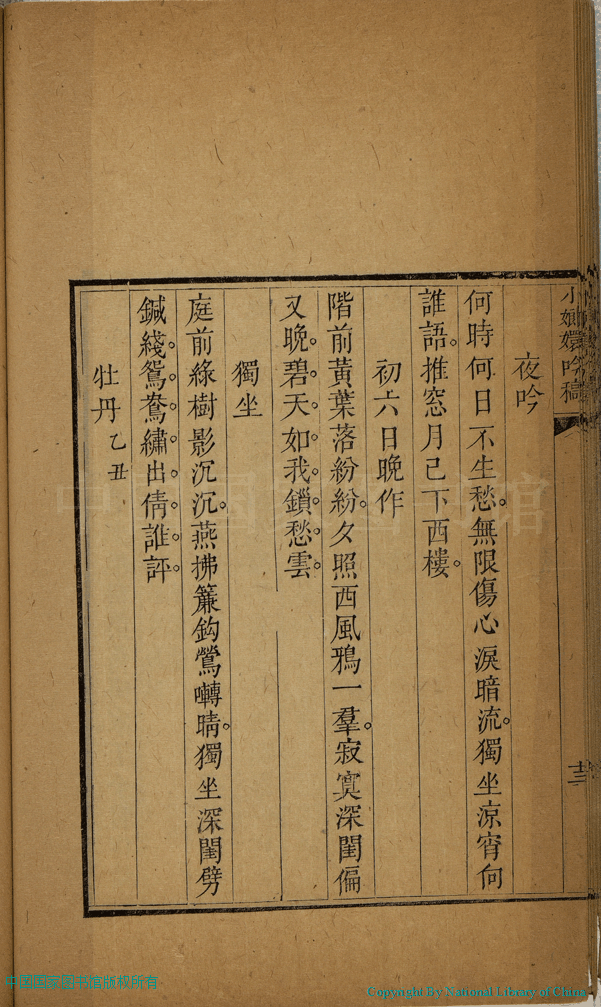 小嫏嬛吟稿
夜吟
何時何日不生愁。無限傷心淚暗流。獨坐凉宵向
誰語。推窓月已下西樓。
初六日晚作
階前黃葉落紛紛。夕照西風鴉一羣。寂寞深閨偏
又晚。碧天如我鎖愁雲。
獨坐
庭前綠樹影沉沉。燕拂簾鈎鶯囀晴。獨坐深閨劈
鍼綫。鴛鴦繡出倩誰評。
牡丹乙丑
中国国家图书馆
中国国家图书馆版权所有
Copyright By National Library of China